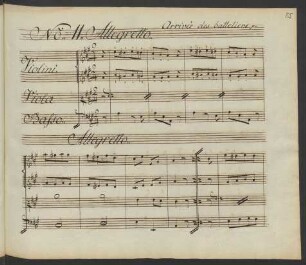 No. 11. Allegretto.
Arrivée des batteliers
Violini.
Viola
Basso.
Allegretto.